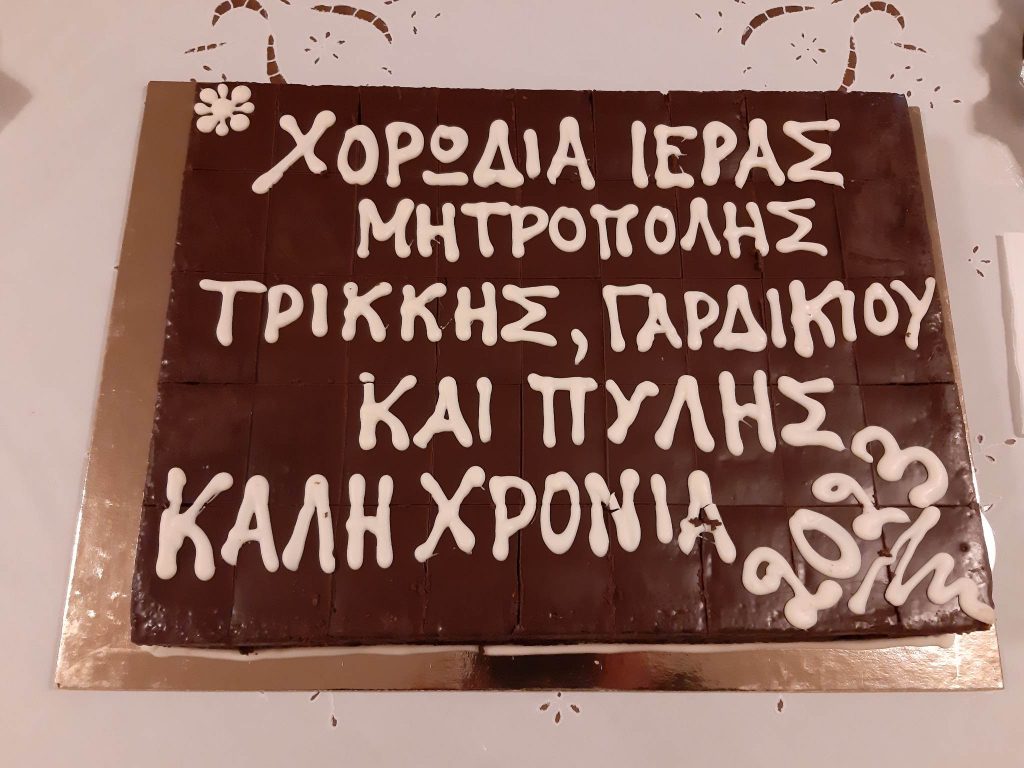 ΧΟΡΩΔΙΑ ΙΕΡΑΣ
ΜΗΤΡΟΠΟΛΗΣ
ΤΡΙΚΚΗΣ, ΓΑΡΔΙΚΙΟΥ
ΚΑΙ ΠΥΛΗΣ
ΚΑΛΗ ΧΡΟΝΙΑ
2023